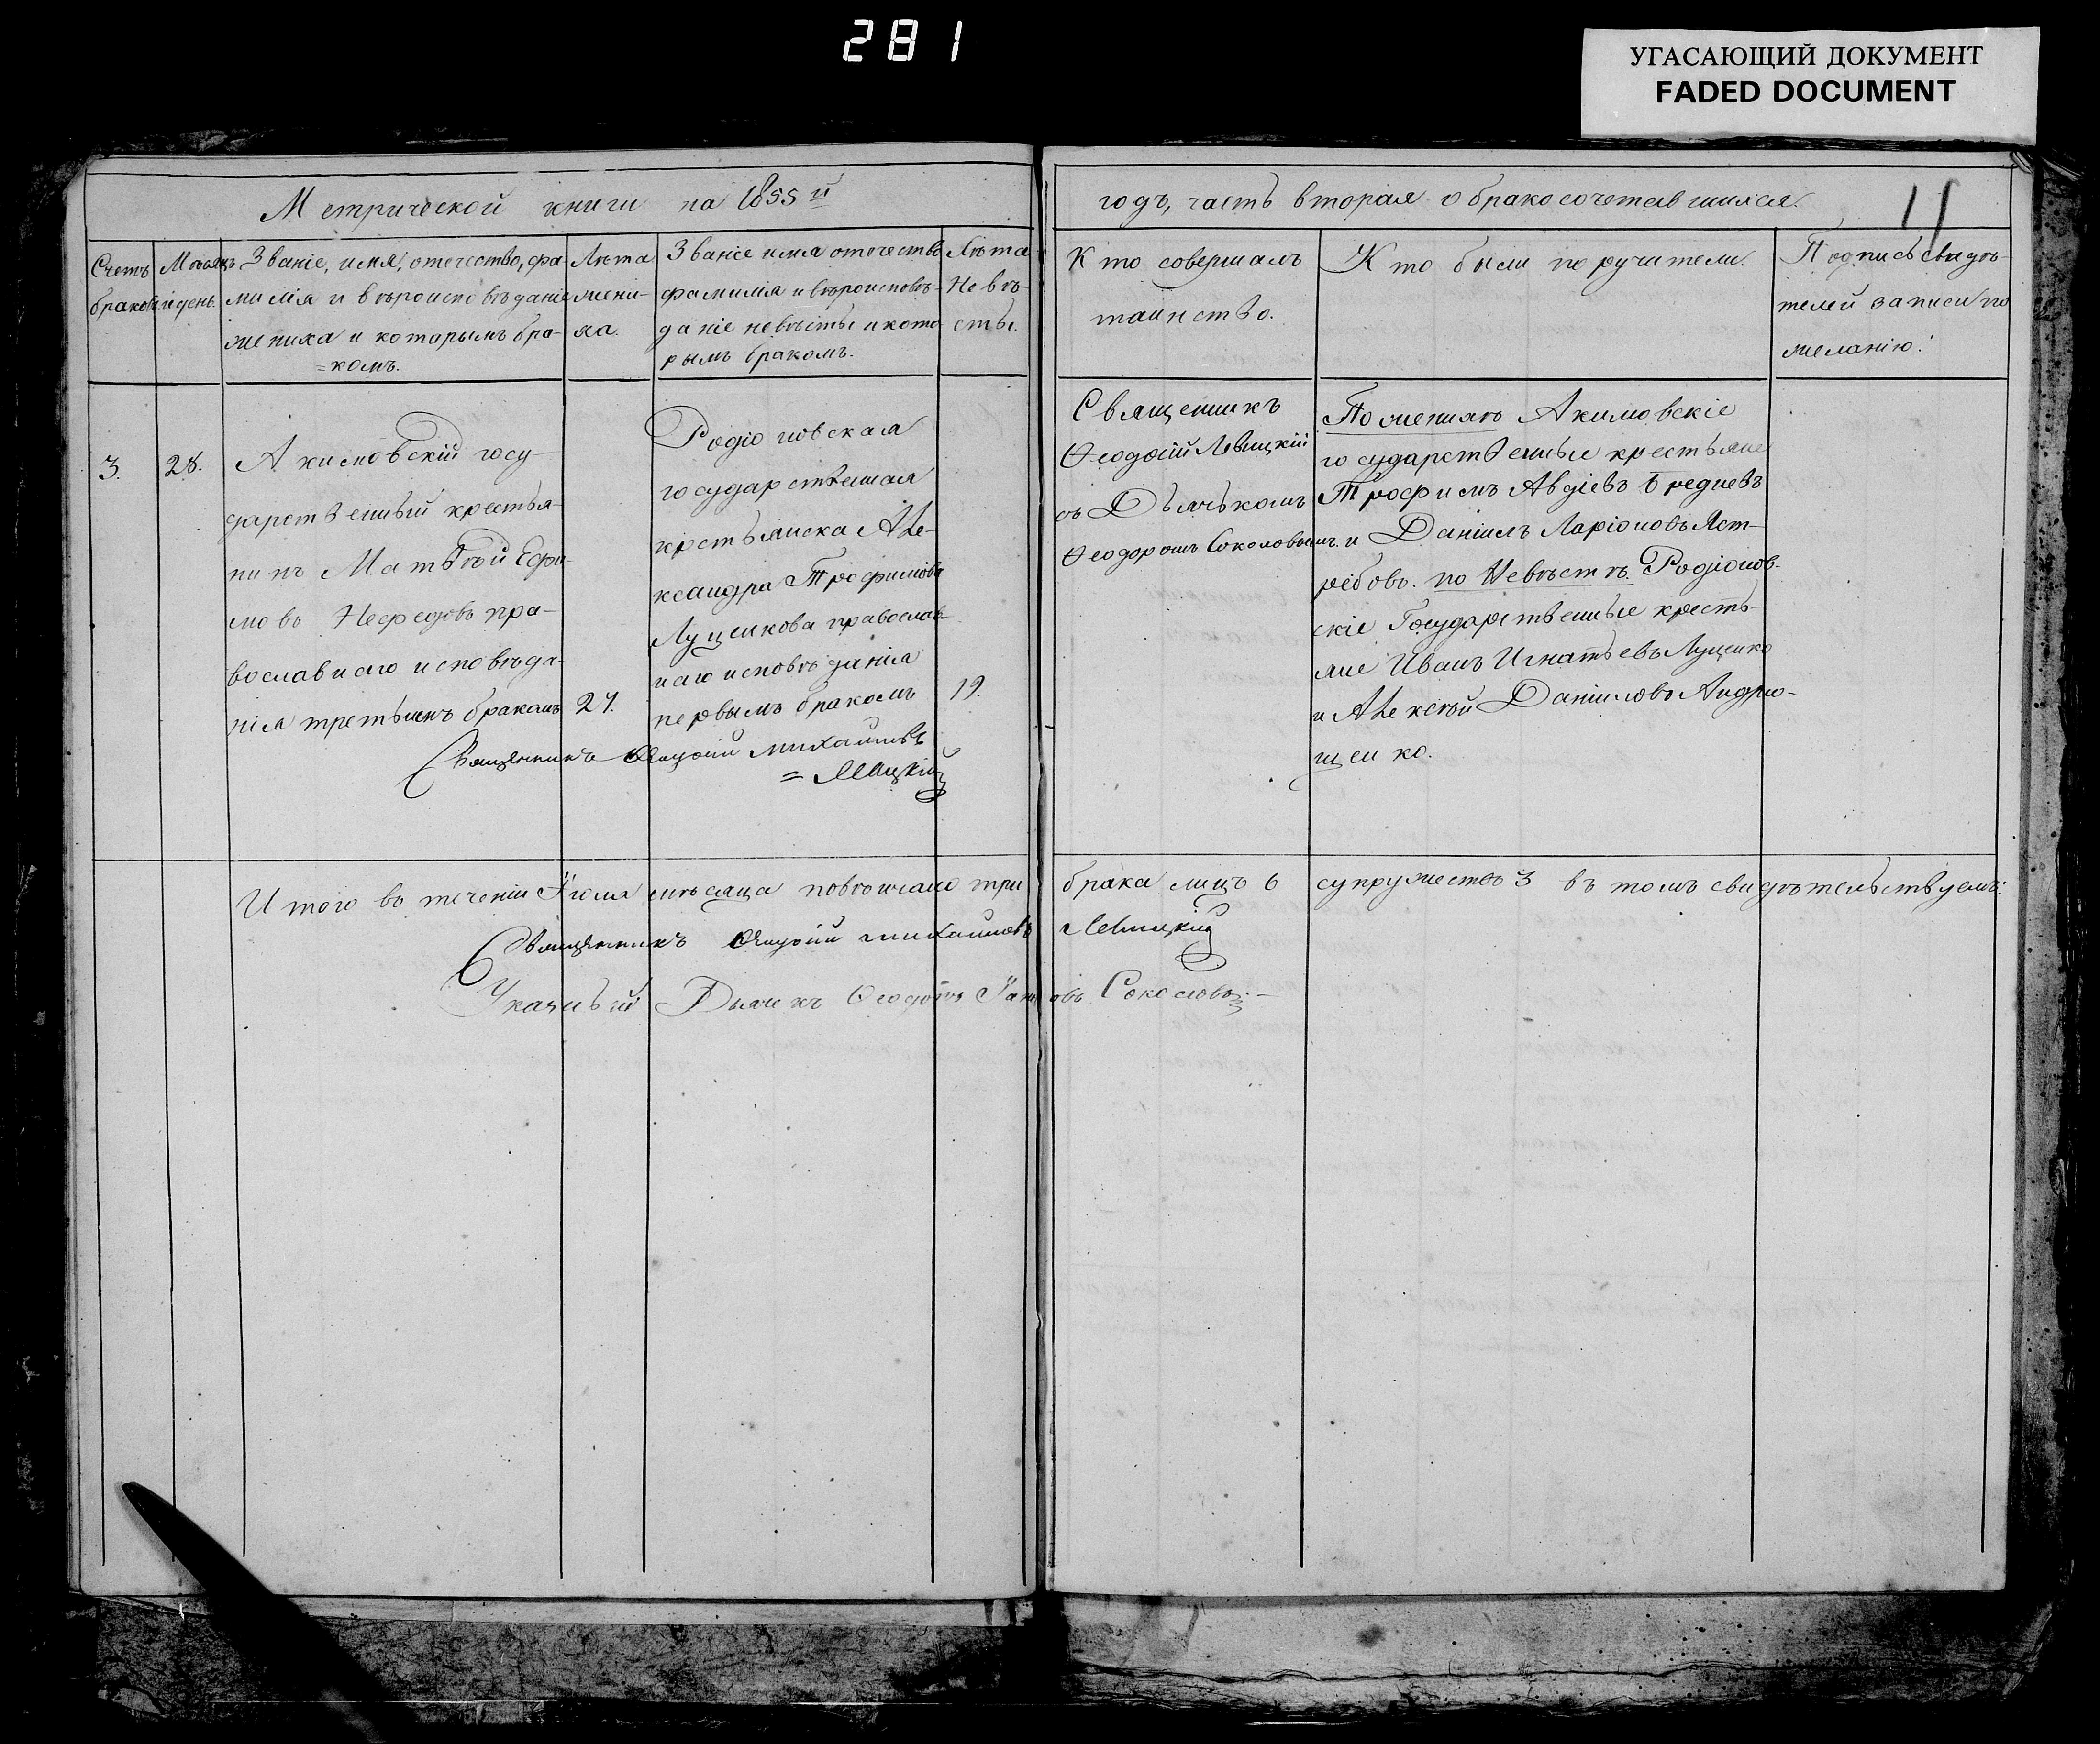 281
УГАСАЮЩИЙ ДОКУМЕНТ
FADED DOCUMENT
Метрической книги на 1855й
годъ, часть вторая о бракосочетавшихся.
11
Счетъ
браковъ.
Мѣсяцъ
и день.
Званіе, имя, отечество, фа-
милія и вѣроисповѣданіе
жениха и которымъ бра-
=комъ.
Лѣта
жени-
ха.
Званіе имя отечество
фамилія и вѣроисповѣ-
даніе невѣсты и кото-
рымъ бракомъ.
Лѣта
Невѣ-
сты.
Кто совершалъ
таинство.
Кто были поручители.
Подпись свидѣ-
телей записи по
желанію.
3.
28.
Акимовскій госу-
дарственный крестья-
нинъ Матвѣй Ефи-
мовъ Нефедовъ пра-
вославнаго исповѣда-
нія третьимъ бракомъ
27.
Родіоновская
государственная
крестьянска Але-
ксандра Трофимова
Луценкова православ-
наго исповѣданія
первымъ бракомъ
19.
Священникъ Ѳеодосій Михайловъ
=Левицкій
Священникъ
Ѳеодосій Левицкій
съ Дьячькомъ
Ѳеодоромъ Соколовымъ.
По женихѣ Акимовскіе
государственные крестьяне
Трофимъ Авдіевъ Бредневъ
и Даніилъ Ларіоновъ Яст-
ребовъ. по Невѣстѣ Родіонов-
скіе Государственные кресть-
яне Иванъ Игнатьевъ Луценко
и Алексѣй Даниловъ Андрю-
щенко.
Итого въ теченіи Іюля мѣсяца повѣнчано три брака лицъ 6 супружествъ 3 въ томъ свидѣтельствуемъ:
Священникъ Ѳеодосій Михайловъ Левицкій
Указный Дьячекъ Ѳеодоръ Соколовъ.